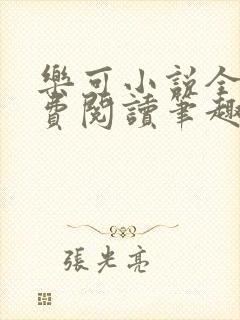 樂可小說全
費閱讀筆趣
張光亮